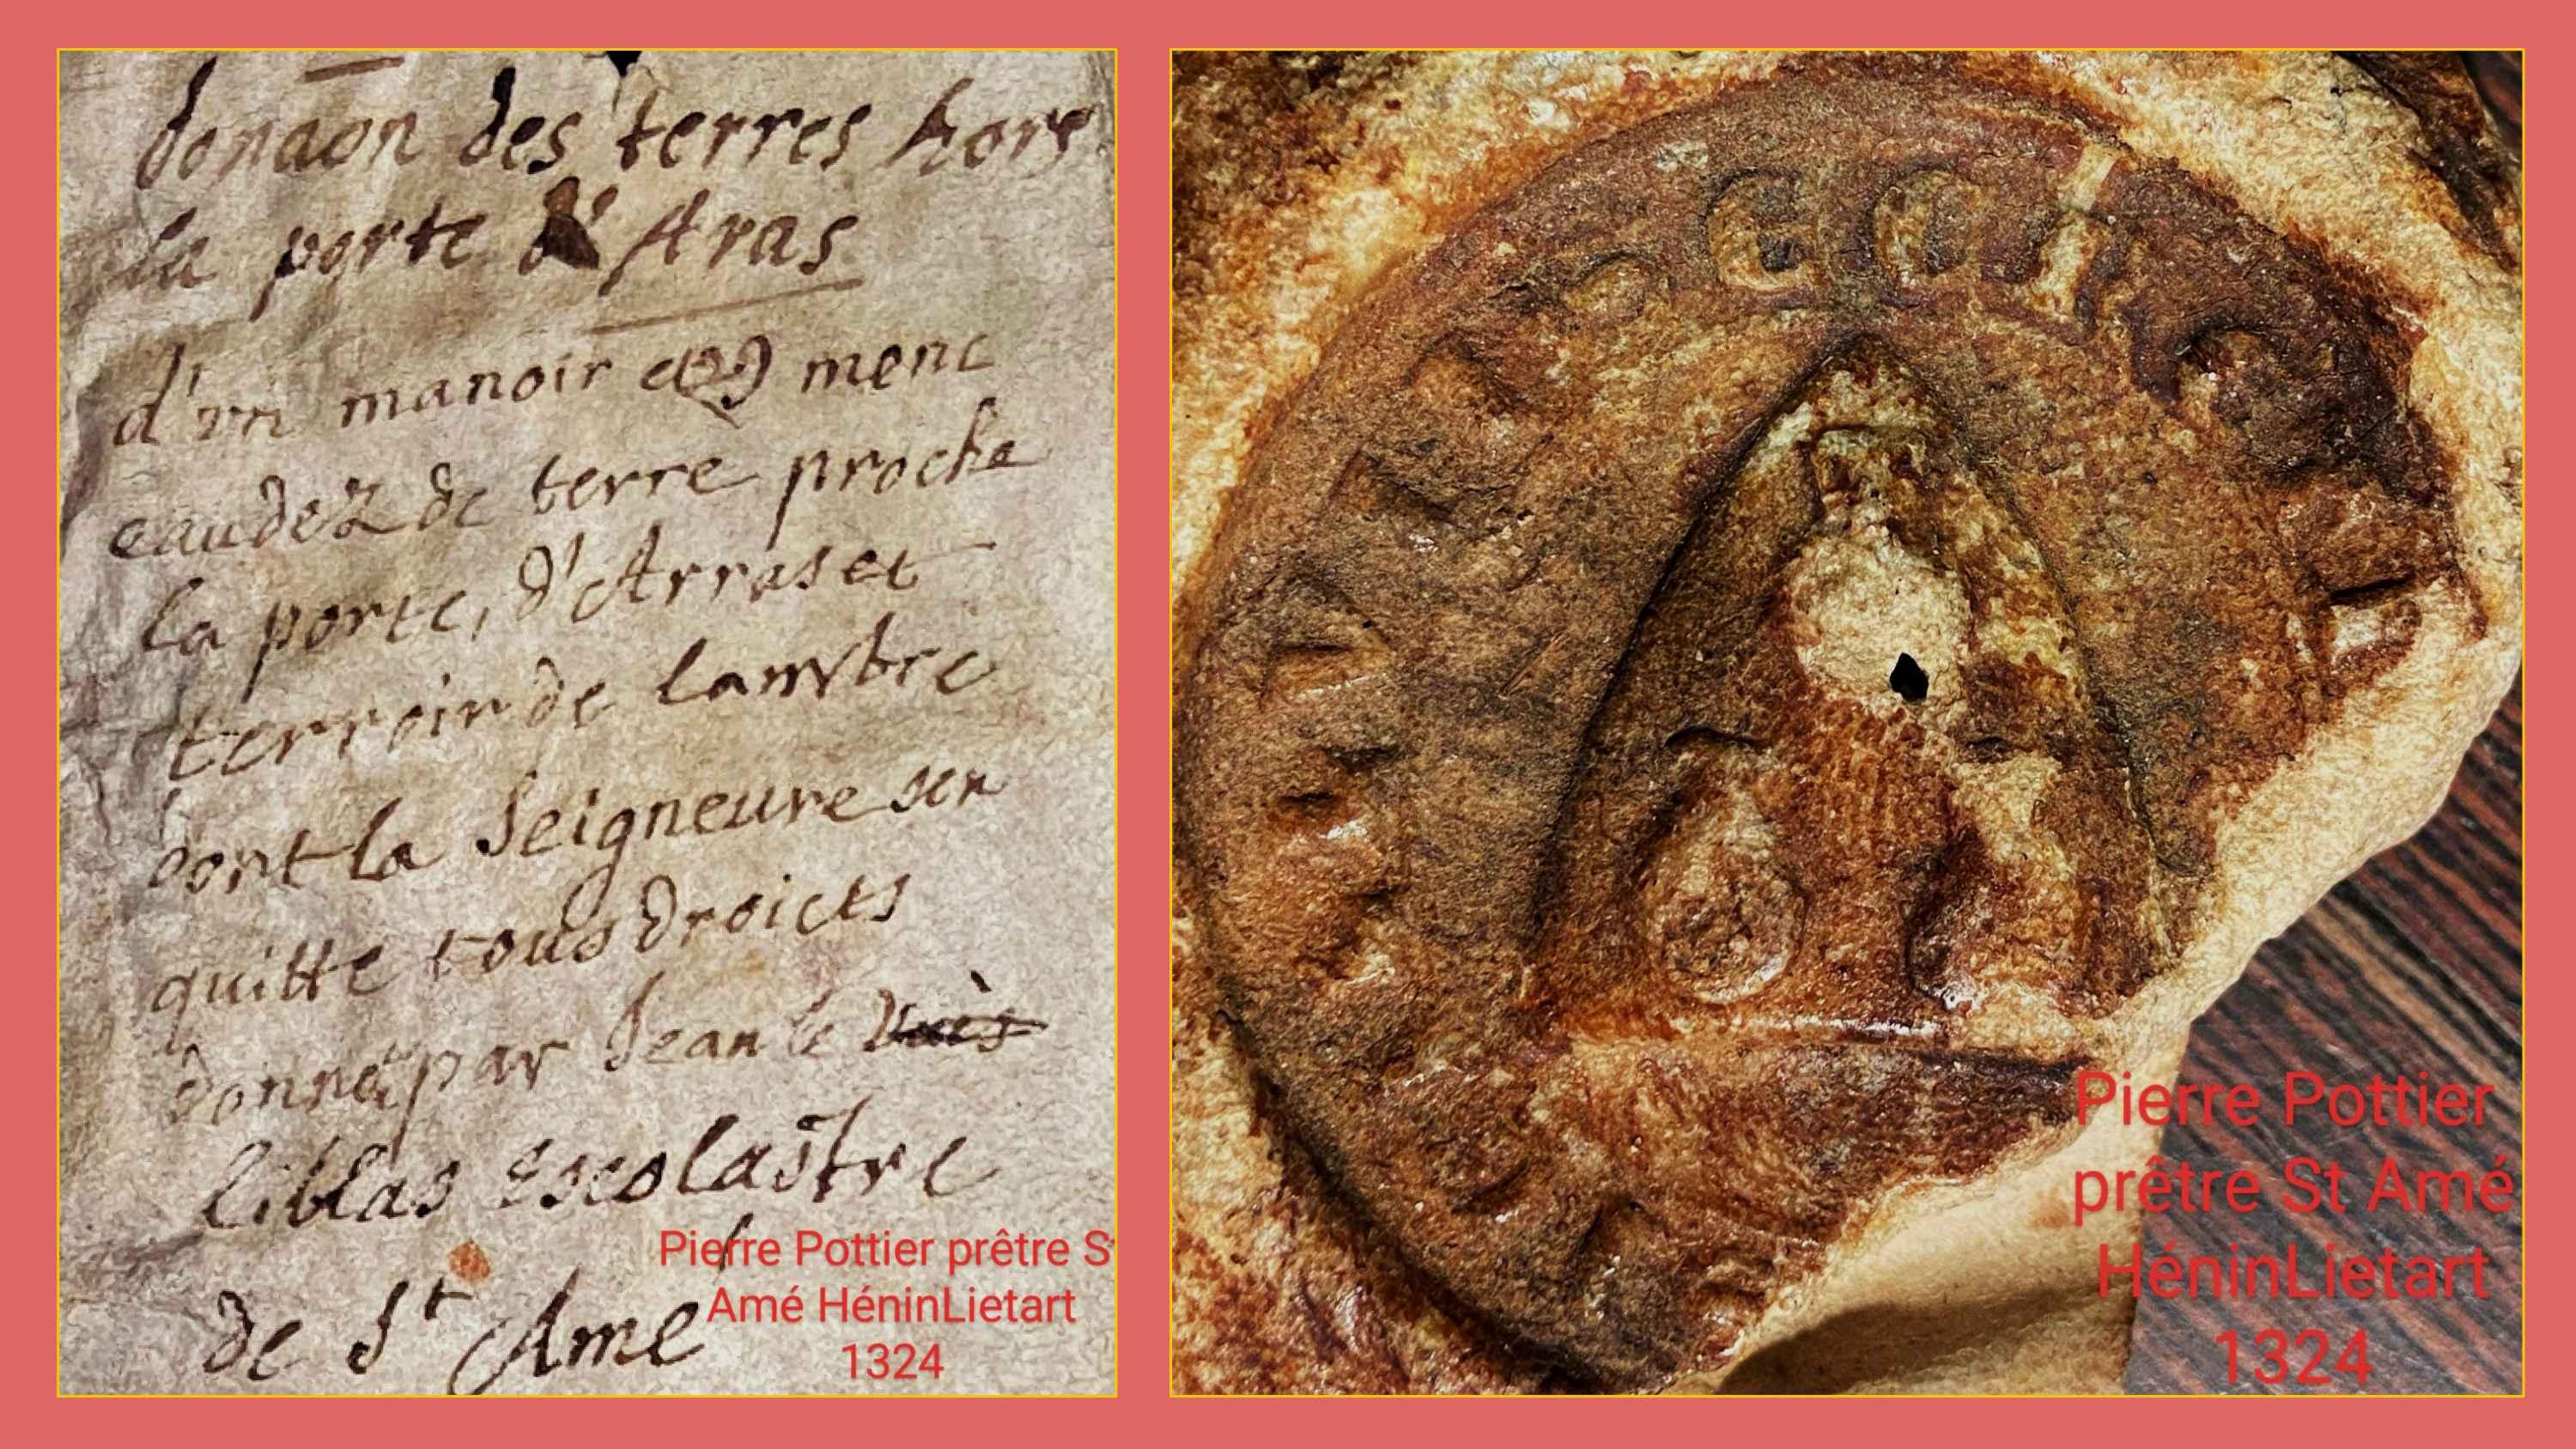 donaon des terres hors
la porte d'Aras
d'vn manoir et menc
caudez de terre proche
la porte, d'Arras et
terroir de lambre
dont la Seigneure sen
quitte tous droicts
donné par Jean le
liblas Escolastre
de St Amé
Pierre Pottier prêtre S
Amé HéninLietart
1324
Pierre Pottier
prêtre St Amé
HéninLietart
1324